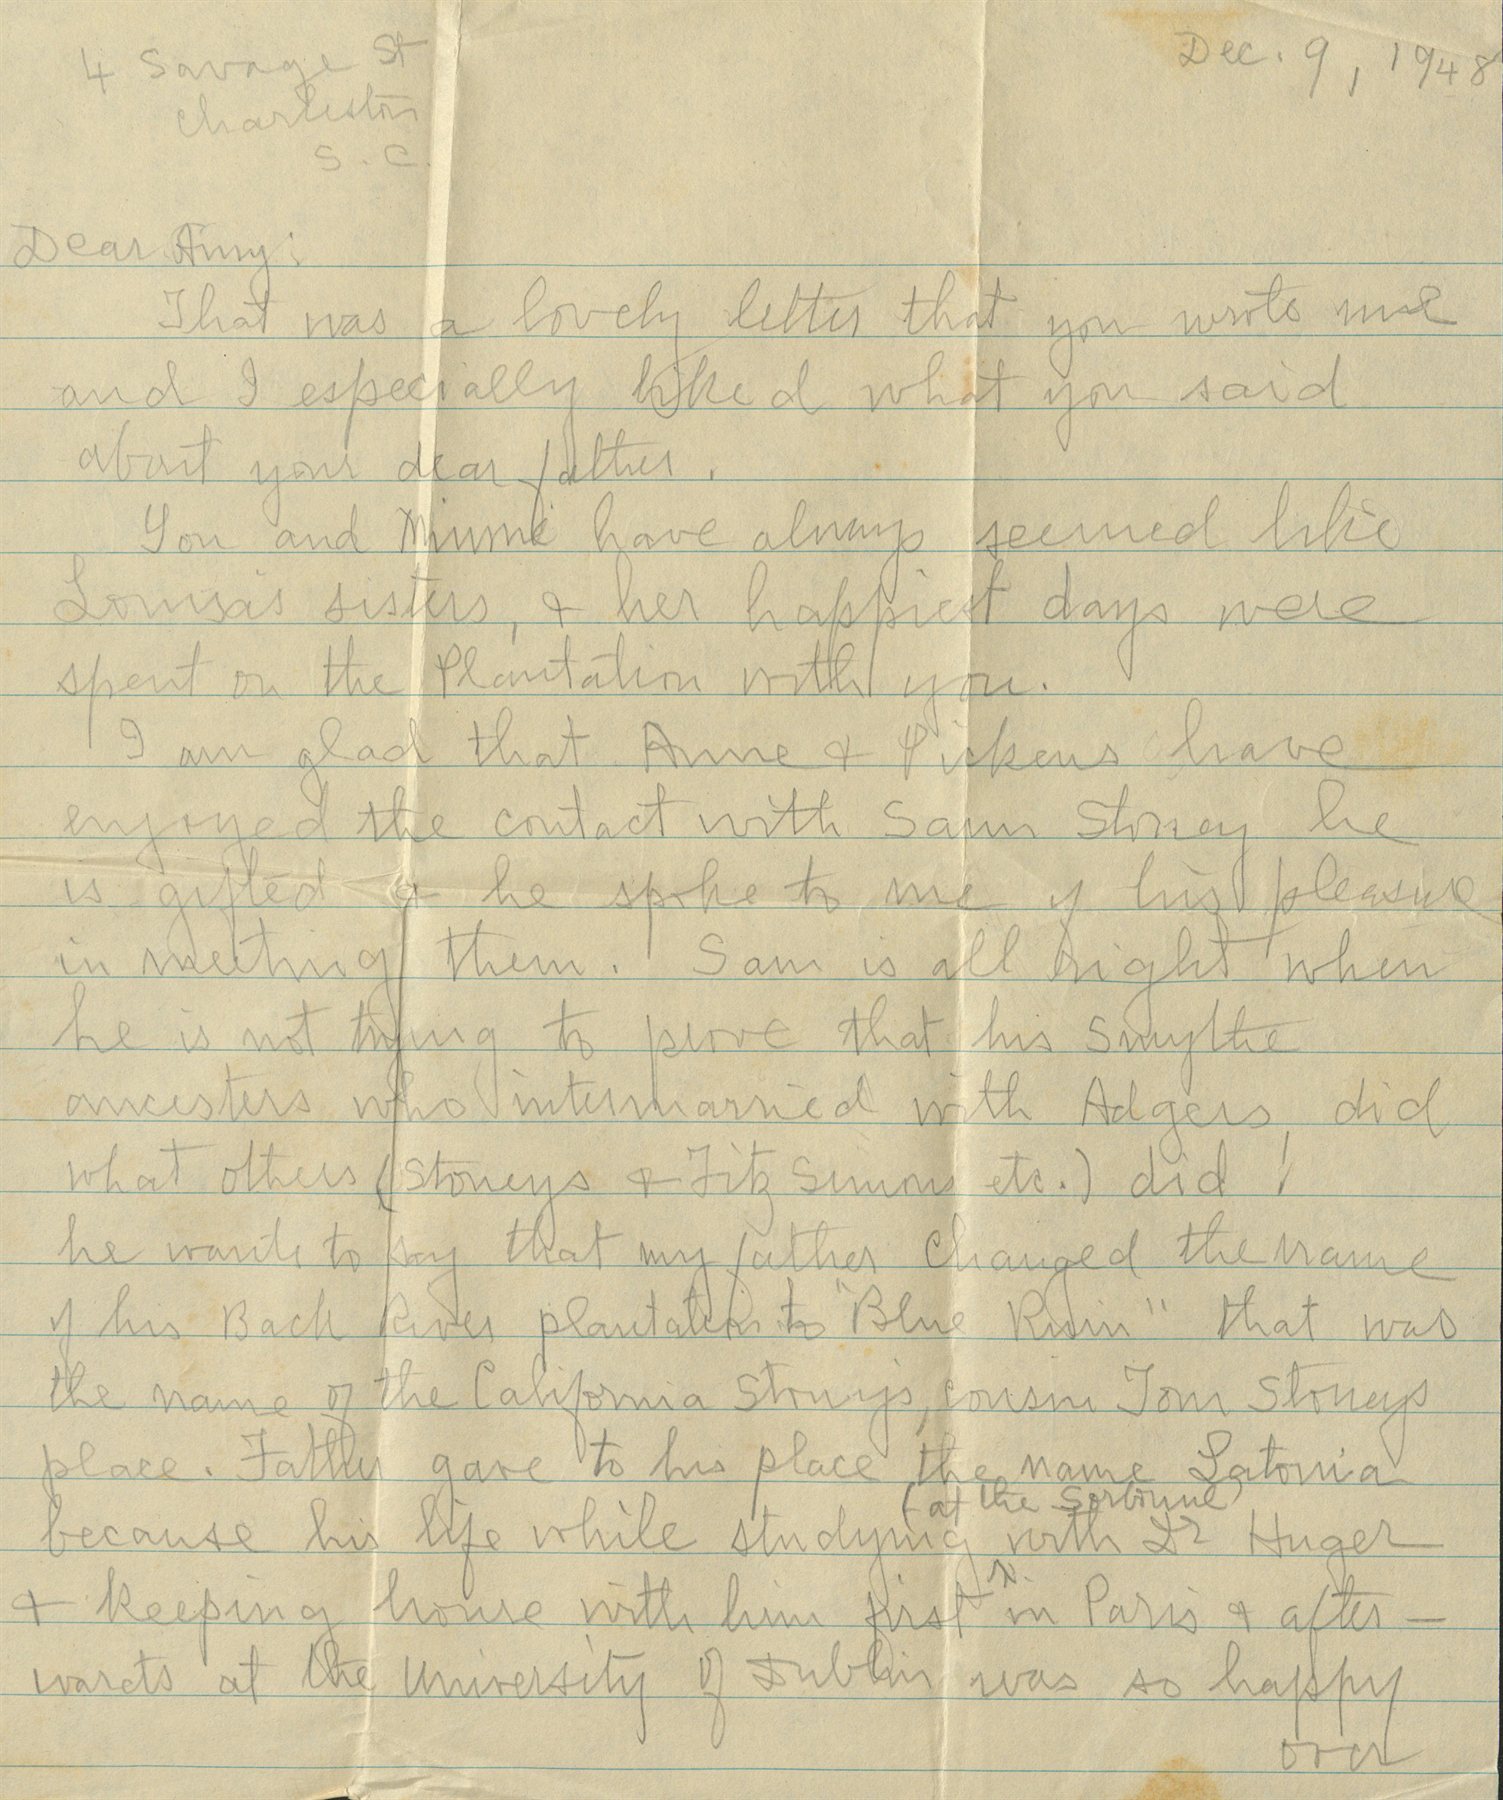 4 Savage St
Charleston
S. C.
Dec. 9, 1948
Dear Amy:
That was a lovely letter that you wrote me
and I especially liked what you said
about your dear father.
You and Mimi have always seemed like
Louisa's sisters, & her happiest days were
spent on the Plantation with you.
I am glad that Anne & Pickens have
enjoyed the contact with Sam Stoney he
is gifted & he spoke to me of his pleasure
in meeting them. Sam is all right when
he is not trying to prove that his Smythe
ancesters who intermarried with Adgers, did
what others (Stoneys & Fitz Simons etc.) did!
he wants to say that my father changed the name
of his Back River plantation to "Blue Ruin" that was
the name of the California Stoneys, cousin Tom Stoneys
place. Father gave to his place the name Latonia
(at the Sorbonne)
because his life while studying with Dr Huger
& keeping house with him first in Paris & after-
wards at the University of Dublin was so happy
over